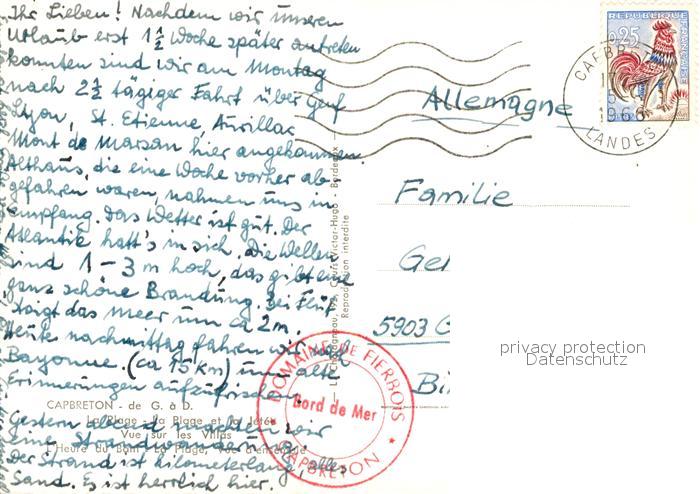 Ihr Lieben! Nachdem wir unseren
Urlaub erst 1 ½ Woche später antreten
konnten sind wir am Montag
nach 2 ½ tägiger Fahrt über Genf
Lyon, St. Etienne, Aurillac
Mont de Marsan hier angekommen.
Althaus, die eine Woche vorher ab-
gefahren waren, nahmen uns in
Empfang. Das Wetter ist gut. Der
Atlantik hatt's in sich. Die Wellen
sind 1 - 3 m hoch, das gibt eine
ganz schöne Brandung. Bei Flut
steigt das Meer um ca 2 m.
Heute nachmittag fahren wir nach
Bayonne. (ca 15 km) um alte
Erinnerungen aufzufrischen.
Gestern abend machten wir
eine Strandwanderung.
Der Strand ist kilometerlang, alles
Sand. Es ist herrlich hier.
CAPBRETON - de G. à D.
La Plage - La Plage et la Jetée
Vue sur les Villas
L'Heure du Bain - La Plage, vue d'ensemble
Cours Victor-Hugo - Bordeaux
Reproduction interdite
REPUBLIQUE FRANÇAISE
0,25
CAPBRETON
LANDES
Allemagne
Familie
Ge
5903 G
Bi
DOMAINE DE FIERBOIS
Bord de Mer
CAPBRETON
privacy protection
Datenschutz